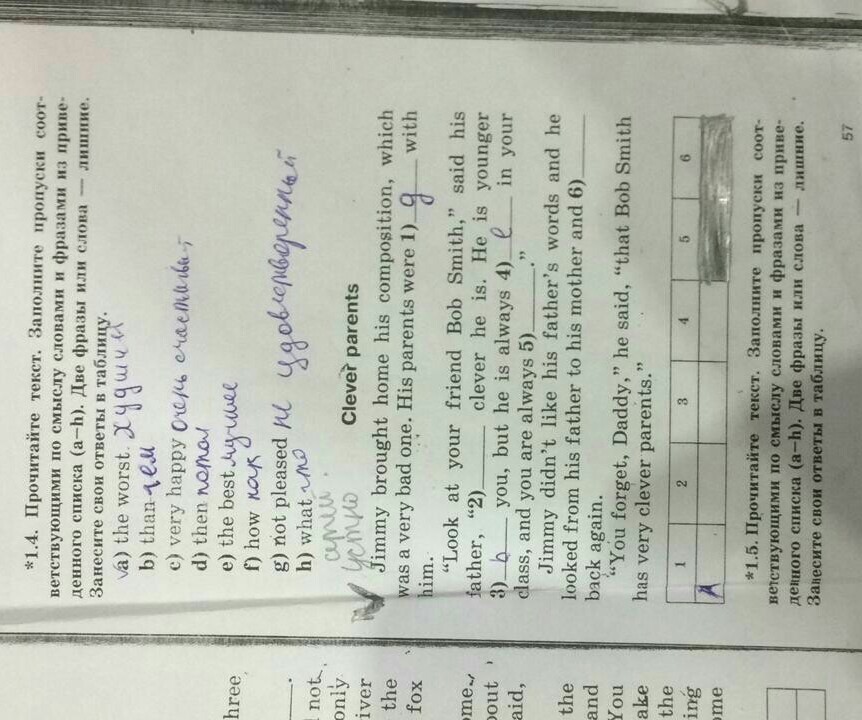 *1.4. Прочитайте текст. Заполните пропуски соот-
ветствующими по смыслу словами и фразами из приве-
денного списка (a–h). Две фразы или слова — лишние.
Занесите свои ответы в таблицу.
a) the worst. худший
b) than чем
c) very happy очень счастливый
d) then потом
e) the best лучшее
f) how как
g) not pleased не удовлетворенный
h) what что
устно
Clever parents
Jimmy brought home his composition, which
was a very bad one. His parents were 1) g with
him.
“Look at your friend Bob Smith,” said his
father, “2)____ clever he is. He is younger
3) b you, but he is always 4) e in your
class, and you are always 5)____.”
Jimmy didn’t like his father’s words and he
looked from his father to his mother and 6)____
back again.
“You forget, Daddy,” he said, “that Bob Smith
has very clever parents.”
1 2 3 4 5 6
*1.5. Прочитайте текст. Заполните пропуски соот-
ветствующими по смыслу словами и фразами из приве-
денного списка (a–h). Две фразы или слова — лишние.
Занесите свои ответы в таблицу.
57
hree
not,
only
iver
the
fox
ome
bout
aid,
the
and
You
ake
the
ing
ome